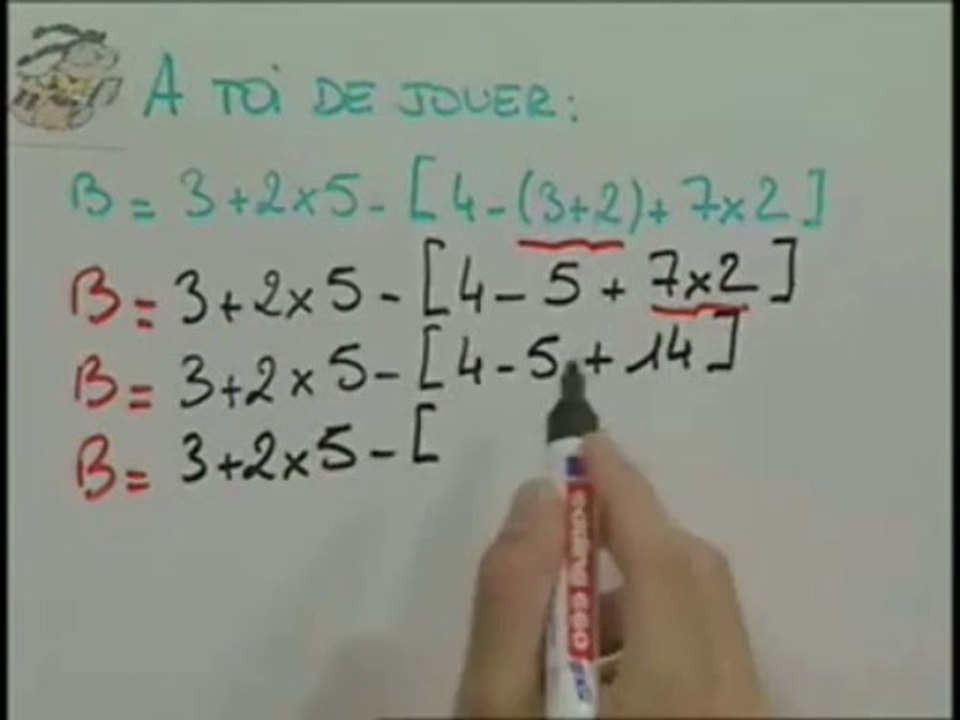 A TOI DE JOUER:
B = 3+2×5-[4-(3+2)+7×2]
B = 3+2×5-[4-5+7×2]
B = 3+2×5-[4-5+14]
B = 3+2×5-[
edding 660